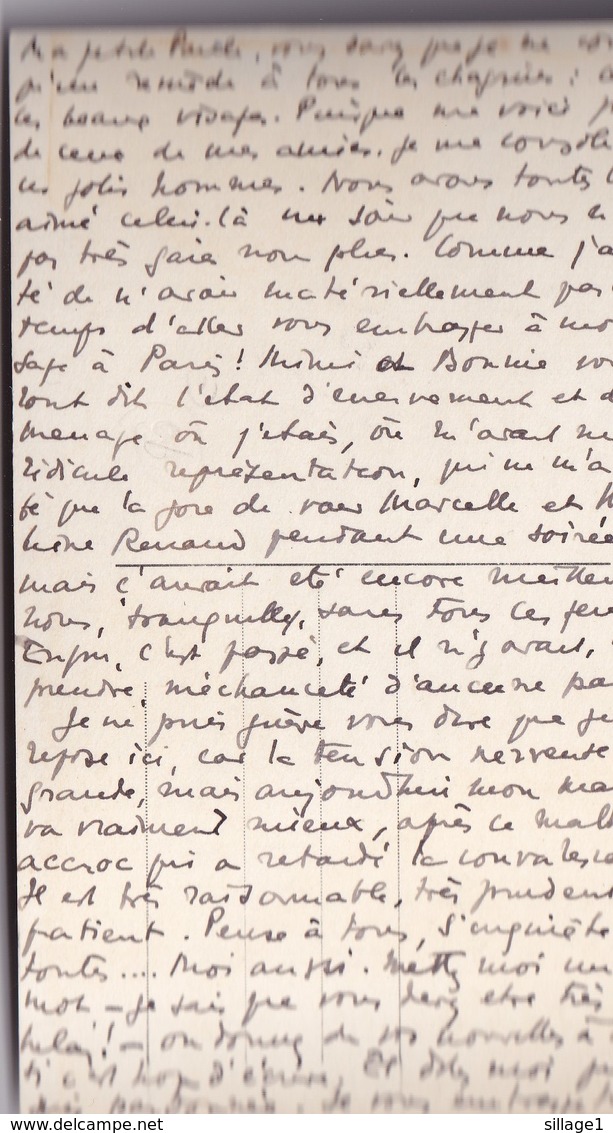 Ma petite Paule, vous savez que je ne
qu'un remède à tous les chagrins :
les beaux visages. Puisque me voici
de ceux de mes amies. Je me console
ces jolis hommes. Nous avons toutes
aimé celui-là un soir que nous n
pas très gaies non plus. Comme j'a
té de n'avoir matériellement pas
temps d'aller vous embrasser à mo
sage à Paris ! Mimi et Bonnie vo
ront dit l'état d'énervement et d
menage où j'étais, où m'avait m
ridicule représentation, qui ne m'a
té que la joie de voir Marcelle et M
Renaud pendant une soirée
mais c'aurait été encore meilleu
nous, tranquilles, sans tous ces gen
Enfin, c'est passé, et il n'y avait,
prendre, méchanceté d'aucune pa
Je ne puis guère vous dire que je
repose ici, car la tension nerveuse
grande, mais aujourd'hui mon ma
va vraiment mieux, après ce malh
accroc qui a retardé la convalesce
Il est très raisonnable, très prudent
patient. Pense à tous, s'inquiète
toutes.... Moi aussi. Mettez moi un
mot - je sais que vous devez être très
hélas ! - ou donnez de vos nouvelles à
si c'est trop d'écrire. Et dites moi
Je vous embrasse
sillage1